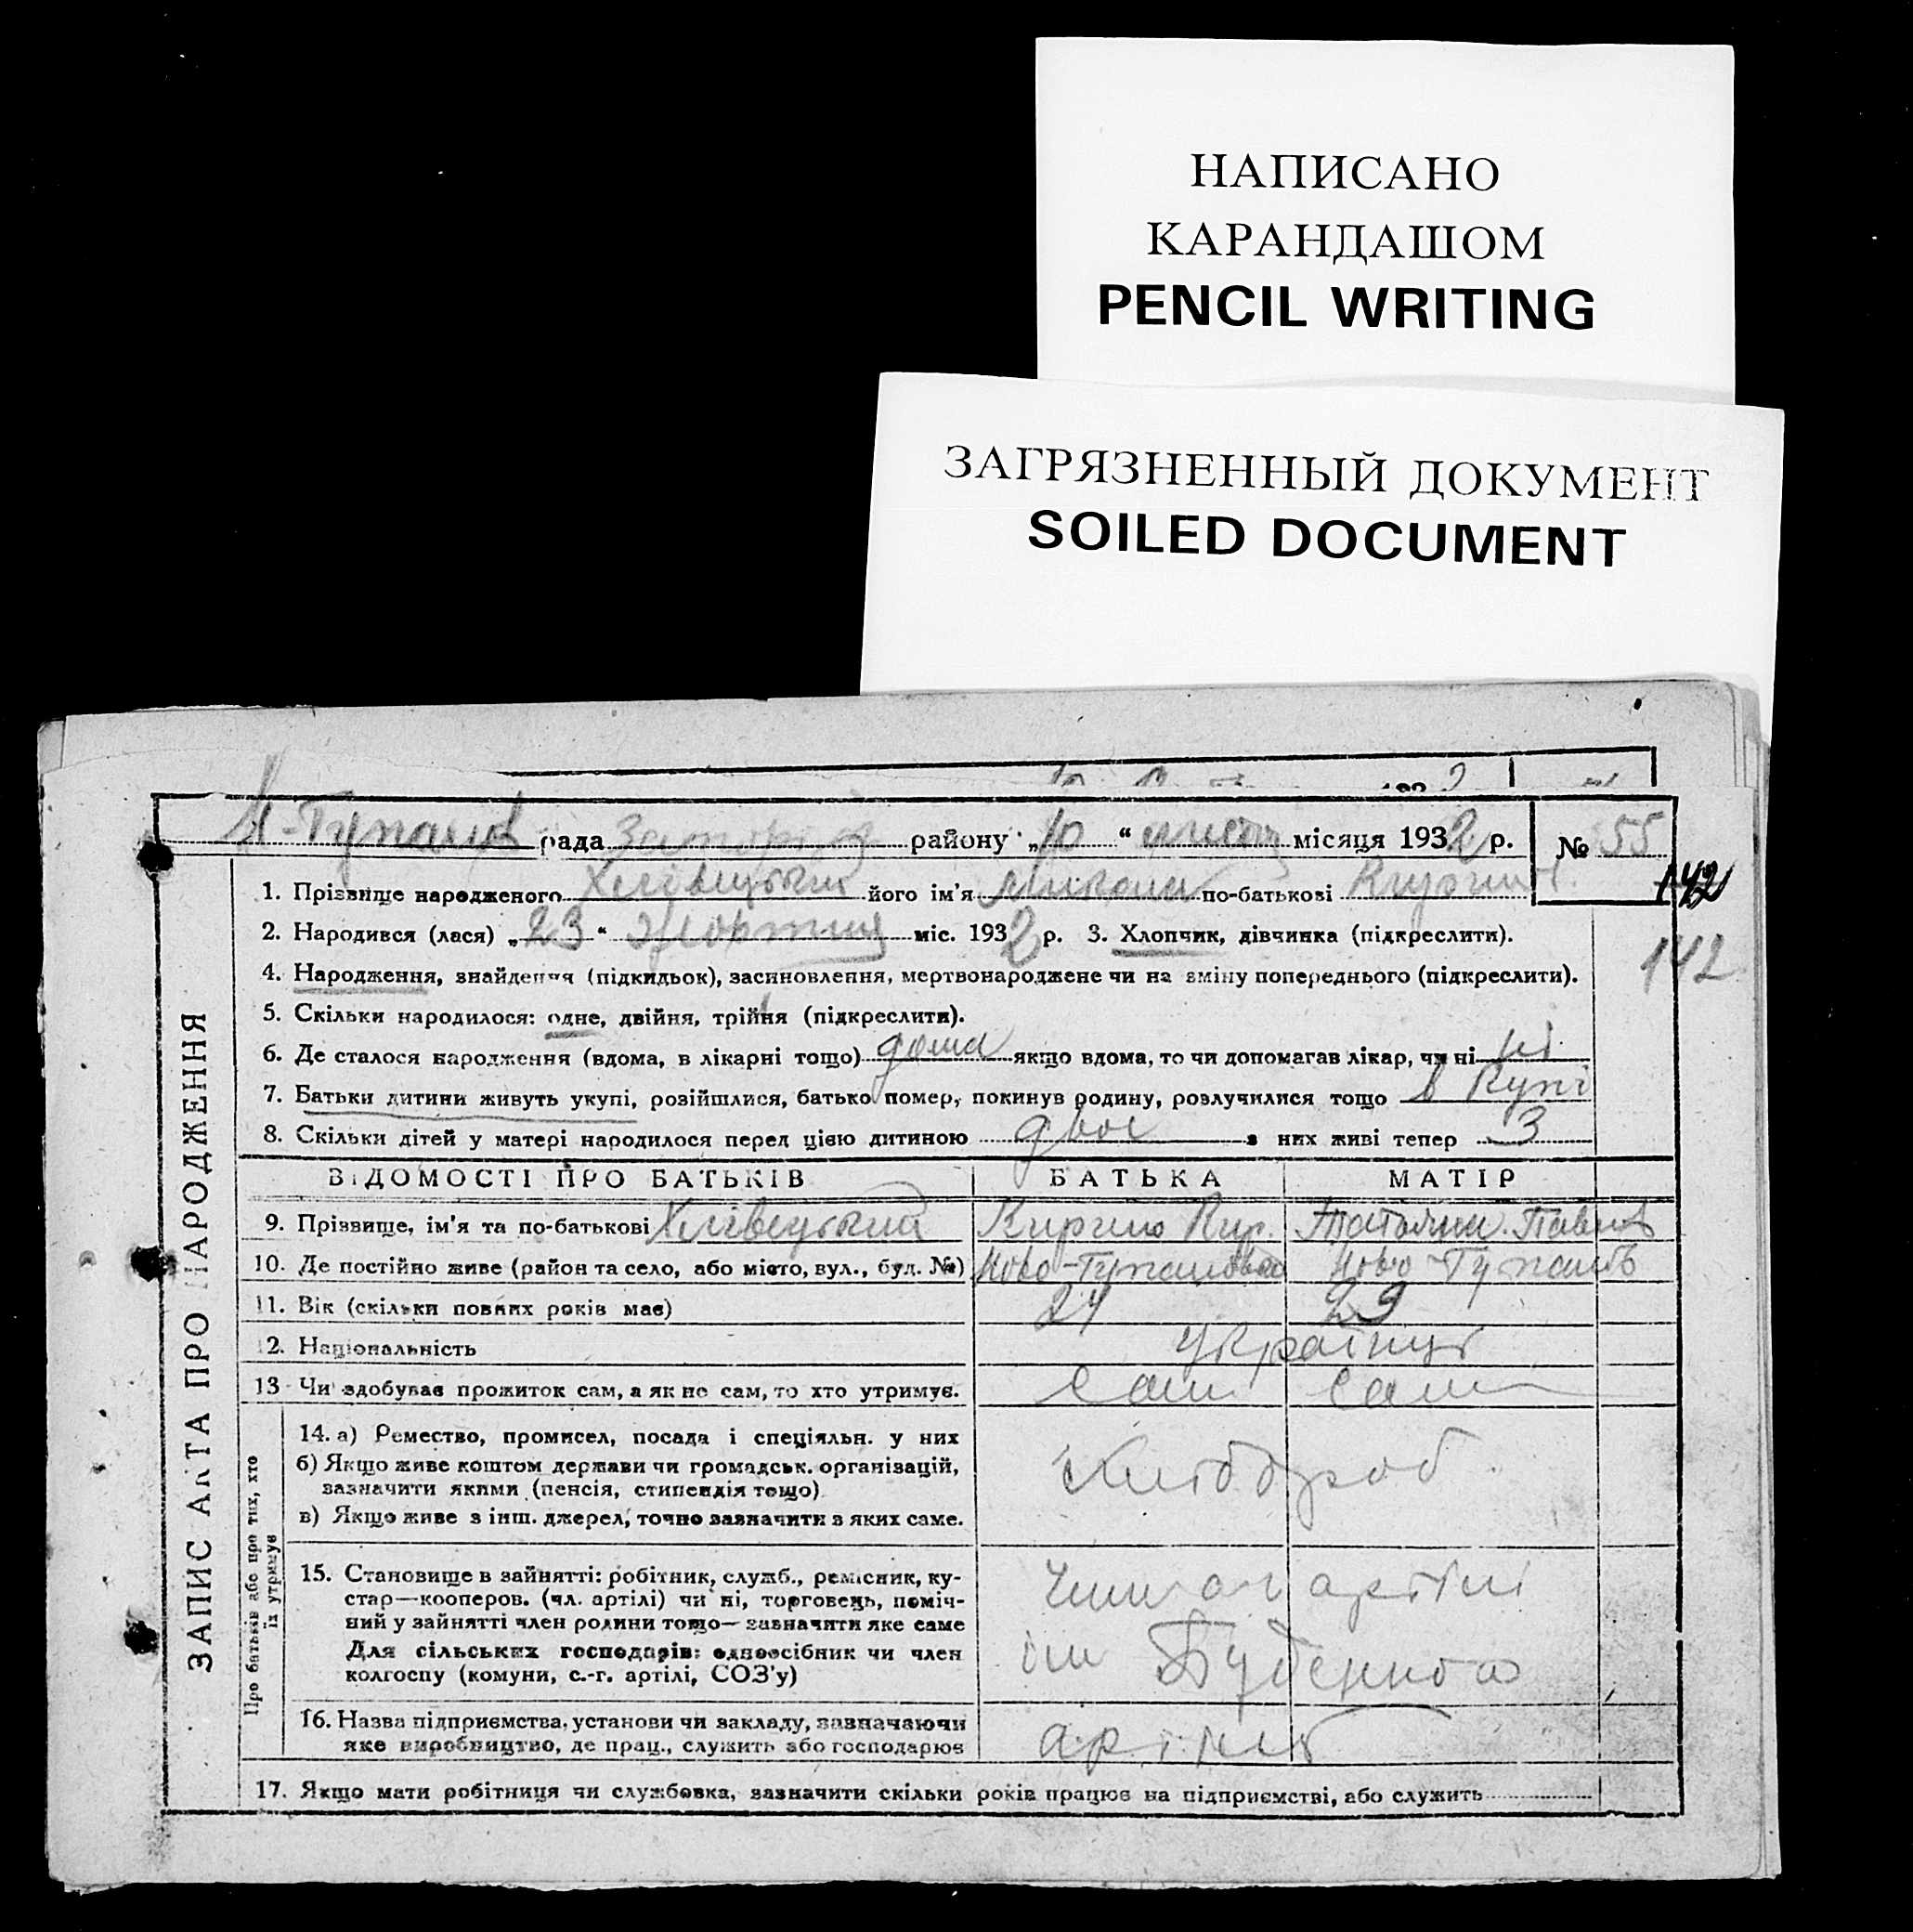 НАПИСАНО
КАРАНДАШОМ
PENCIL WRITING
ЗАГРЯЗНЕННЫЙ ДОКУМЕНТ
SOILED DOCUMENT
рада району „10 “ місяця 1932 р. № 55
1. Прізвище народженого Хлівецький його ім'я Микола по-батькові 142
2. Народився (лася) „23“ Жовтня міс. 1932 р. 3. Хлопчик, дівчинка (підкреслити).
142
4. Народження, знайдення (підкидьок), засиновлення, мертвонароджене чи на зміну попереднього (підкреслити).
5. Скільки народилося: одне, двійня, трійня (підкреслити).
6. Де сталося народження (вдома, в лікарні тощо) дома якщо вдома, то чи допомагав лікар, чи ні ні
7. Батьки дитини живуть укупі, розійшлися, батько помер, покинув родину, розлучилися тощо в купі
8. Скільки дітей у матері народилося перед цією дитиною двоє з них живі тепер 3
ВІДОМОСТІ ПРО БАТЬКІВ БАТЬКА МАТІР
9. Прізвище, ім'я та по-батькові Хлівецький Кирило Кир. Татьяна Павлов
10. Де постійно живе (район та село, або місто, вул., буд. №) Ново-
11. Вік (скільки повних років має) 24 23
12. Національність українці
13 Чи здобуває прожиток сам, а як не сам, то хто утримує. Сам Сам
14. а) Ремество, промисел, посада і спеціяльн. у них
б) Якщо живе коштом держави чи громадськ. організацій,
зазначити якими (пенсія, стипендія тощо)
в) Якщо живе з інш. джерел, точно зазначити з яких саме.
Хлібороб
15. Становище в зайнятті: робітник, служб., ремісник, ку-
стар—кооперов. (чл. артілі) чи ні, торговець, поміч-
ний у зайнятті член родини тощо— зазначити яке саме
Для сільських господарів: одноосібник чи член
колгоспу (комуни, с.-г. артілі, СОЗ'у)
артілі
ім Буденного
16. Назва підприємства, установи чи закладу, зазначаючи
яке виробництво, де прац., служить або господарює
артіль
17. Якщо мати робітниця чи службовка, зазначити скільки років працює на підприємстві, або служить
ЗАПИС АКТА ПРО НАРОДЖЕННЯ
Про батьків або про тих, хто
їх утримує